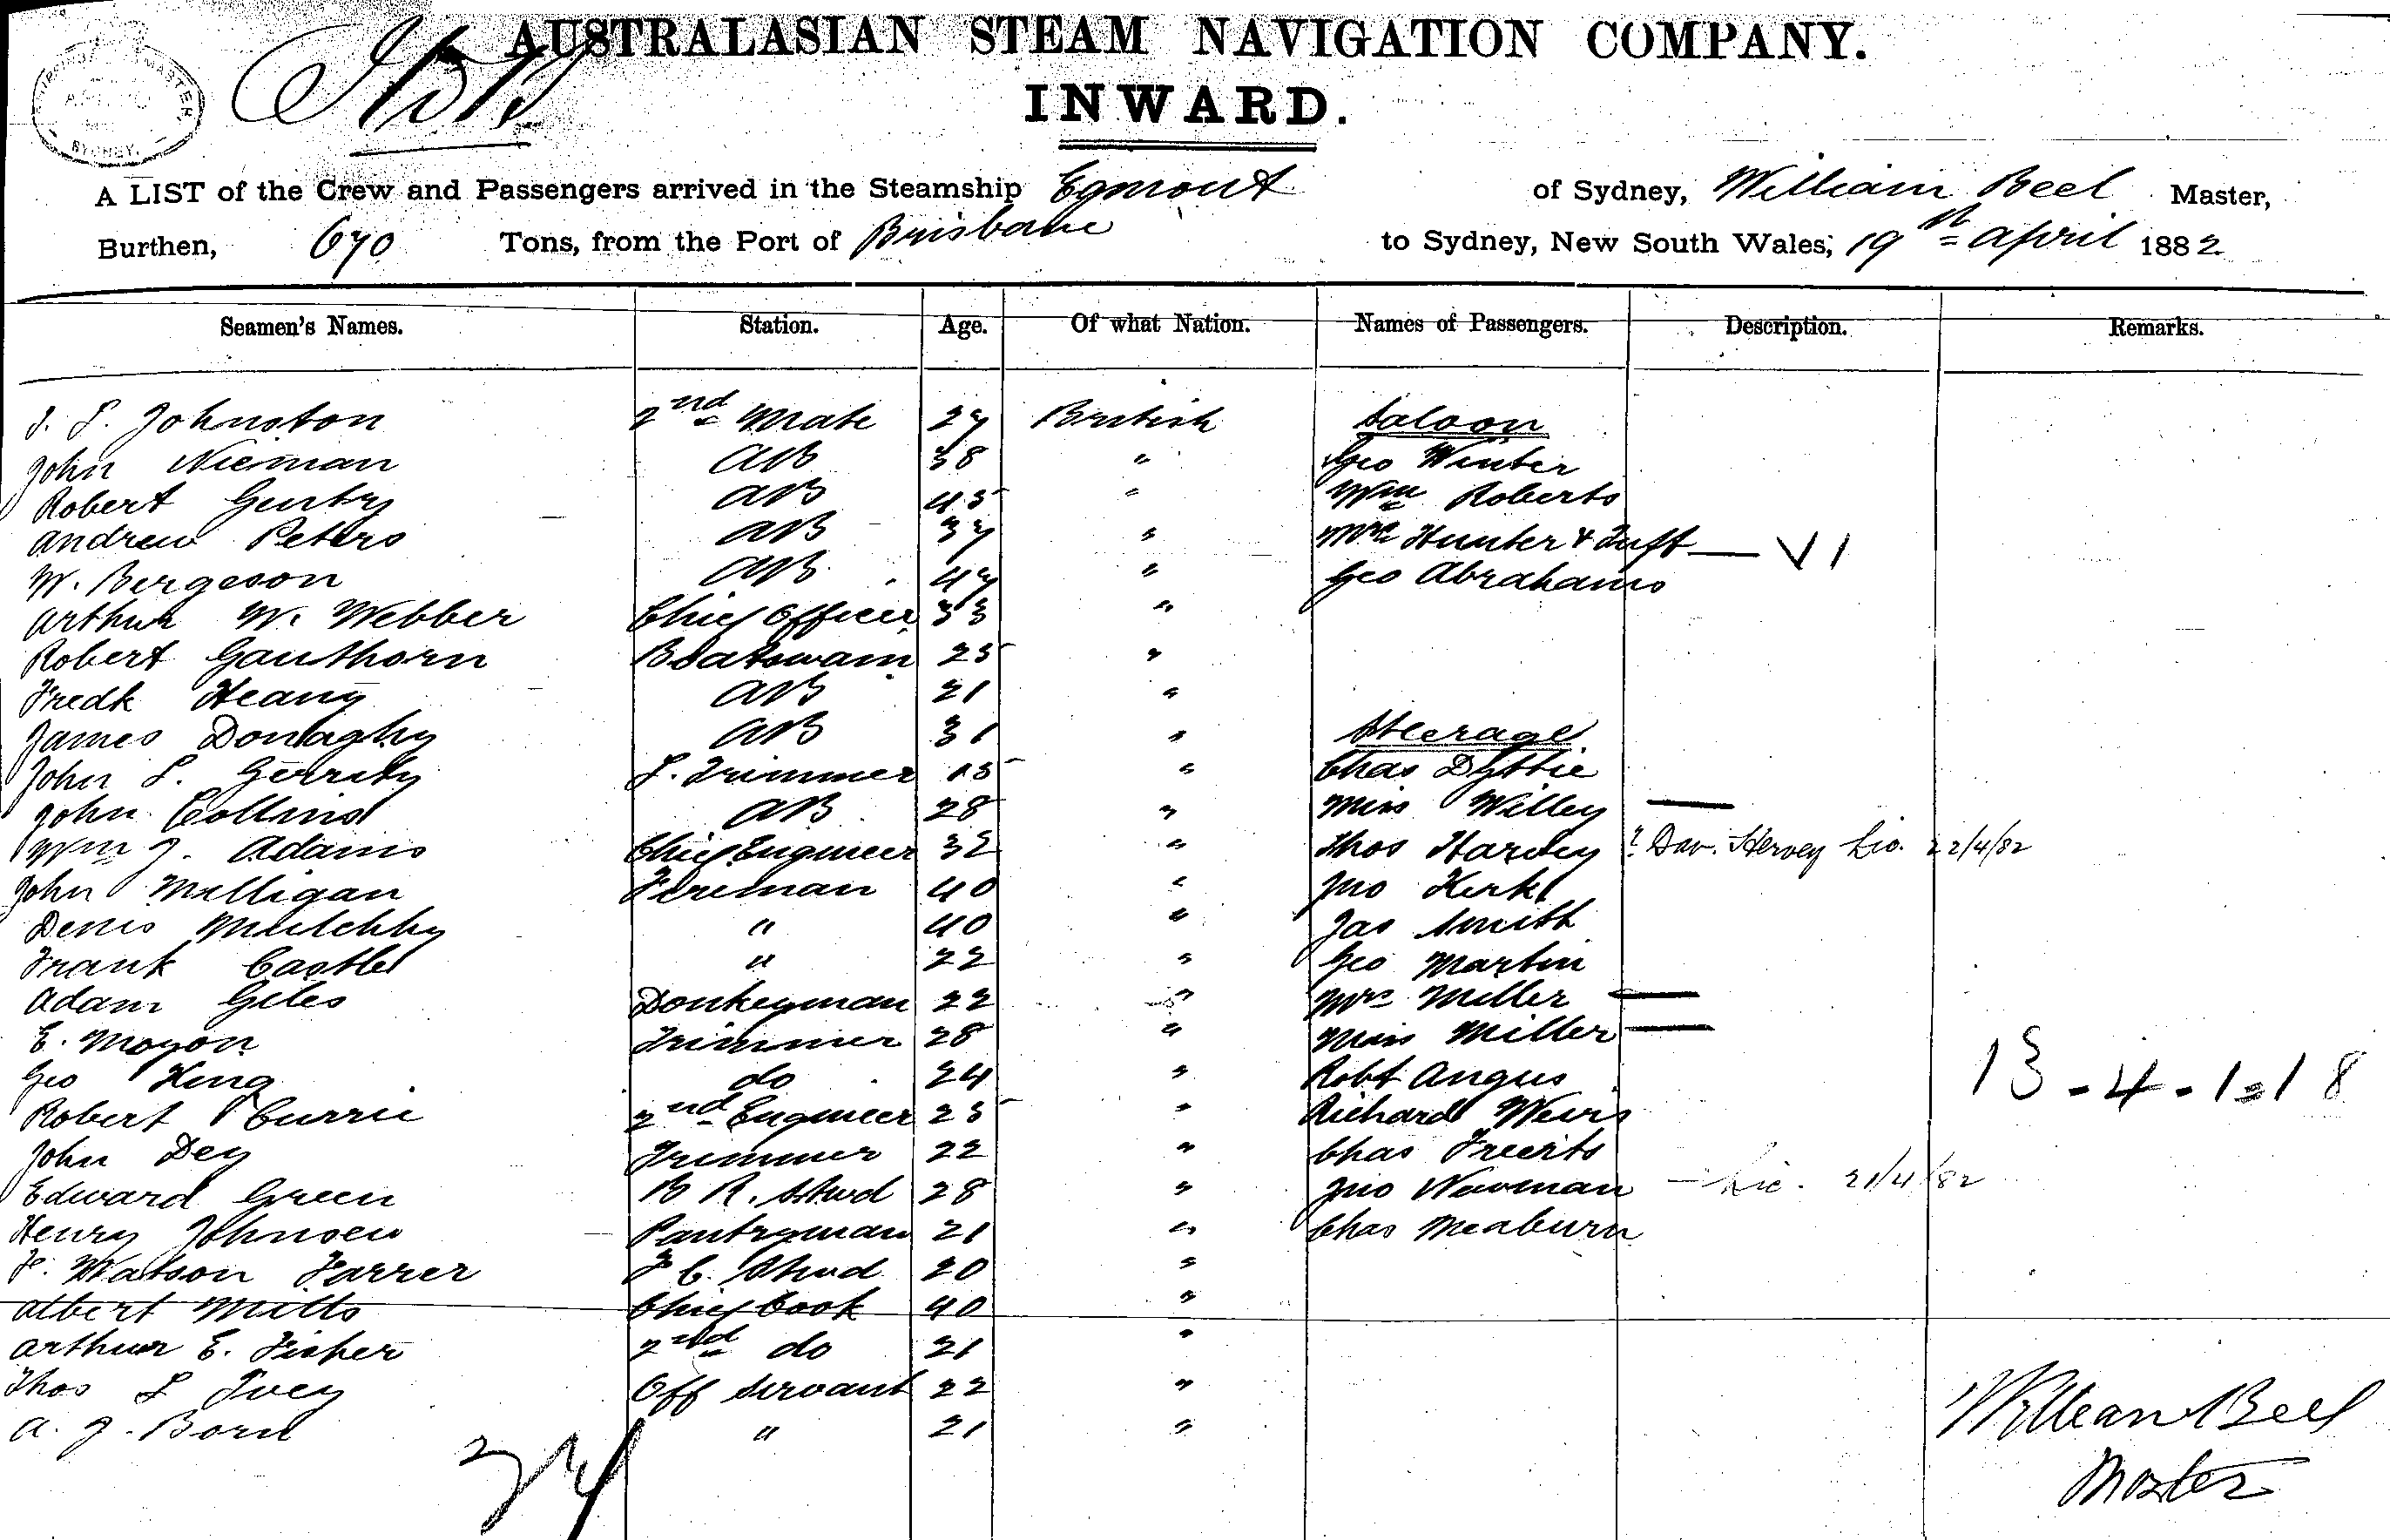 AUSTRALASIAN STEAM NAVIGATION COMPANY.
INWARD.
SYDNEY.
A LIST of the Crew and Passengers arrived in the Steamship Egmont of Sydney, William Beel Master,
Burthen, 670 Tons, from the Port of Brisbane to Sydney, New South Wales, 19th April 1882
Seamen's Names. Station. Age. Of what Nation. Names of Passengers. Description. Remarks.
Johnston 2nd Mate 27 British Saloon
John Nieman AB 38 " Geo Winter
Robert AB 45 " Wm Roberts
Andrew Peters AB 37 " Mrs Hunter & Inft — V1
W. Bergeson AB 47 " Geo Abrahams
Arthur W. Webber Chief Officer 33 "
Robert Gauthorn Boatswain 25 "
Fredk Heany AB 21 "
James Donaghy AB 31 " Steerage
John Gerrity Trimmer " Chas
John Collins AB 28 " Miss Willey —
Wm J. Adams Chief Engineer 32 " Thos Harvey ? Dav. Hervey Lic. 22/4/82
John Milligan Fireman 40 " Jno Kirk
Denis " 40 " Jas Smith
Frank Castle " 22 " Geo Martin
Adam Giles Donkeyman 22 " Mrs Miller —
E. Moyon Trimmer 28 " Miss Miller —
Geo King do 24 " Robt Angus
Robert Currie 2nd Engineer 25 " Richard
John Dey Trimmer 22 " Chas
Edward Green B R. Stwd 28 " Jno Newman — Lic. 21/4/82
Henry Johnsen Pantryman 21 " Chas Meaburn
Watson Farrer F C. Stwd 20 "
Albert Mills Chief Cook 40 "
Arthur E. Fisher 2nd do 21 "
Thos L Ivey Off Servant 22 "
A. J. Born " 21 "
13-4-1=18
William Beel
Master